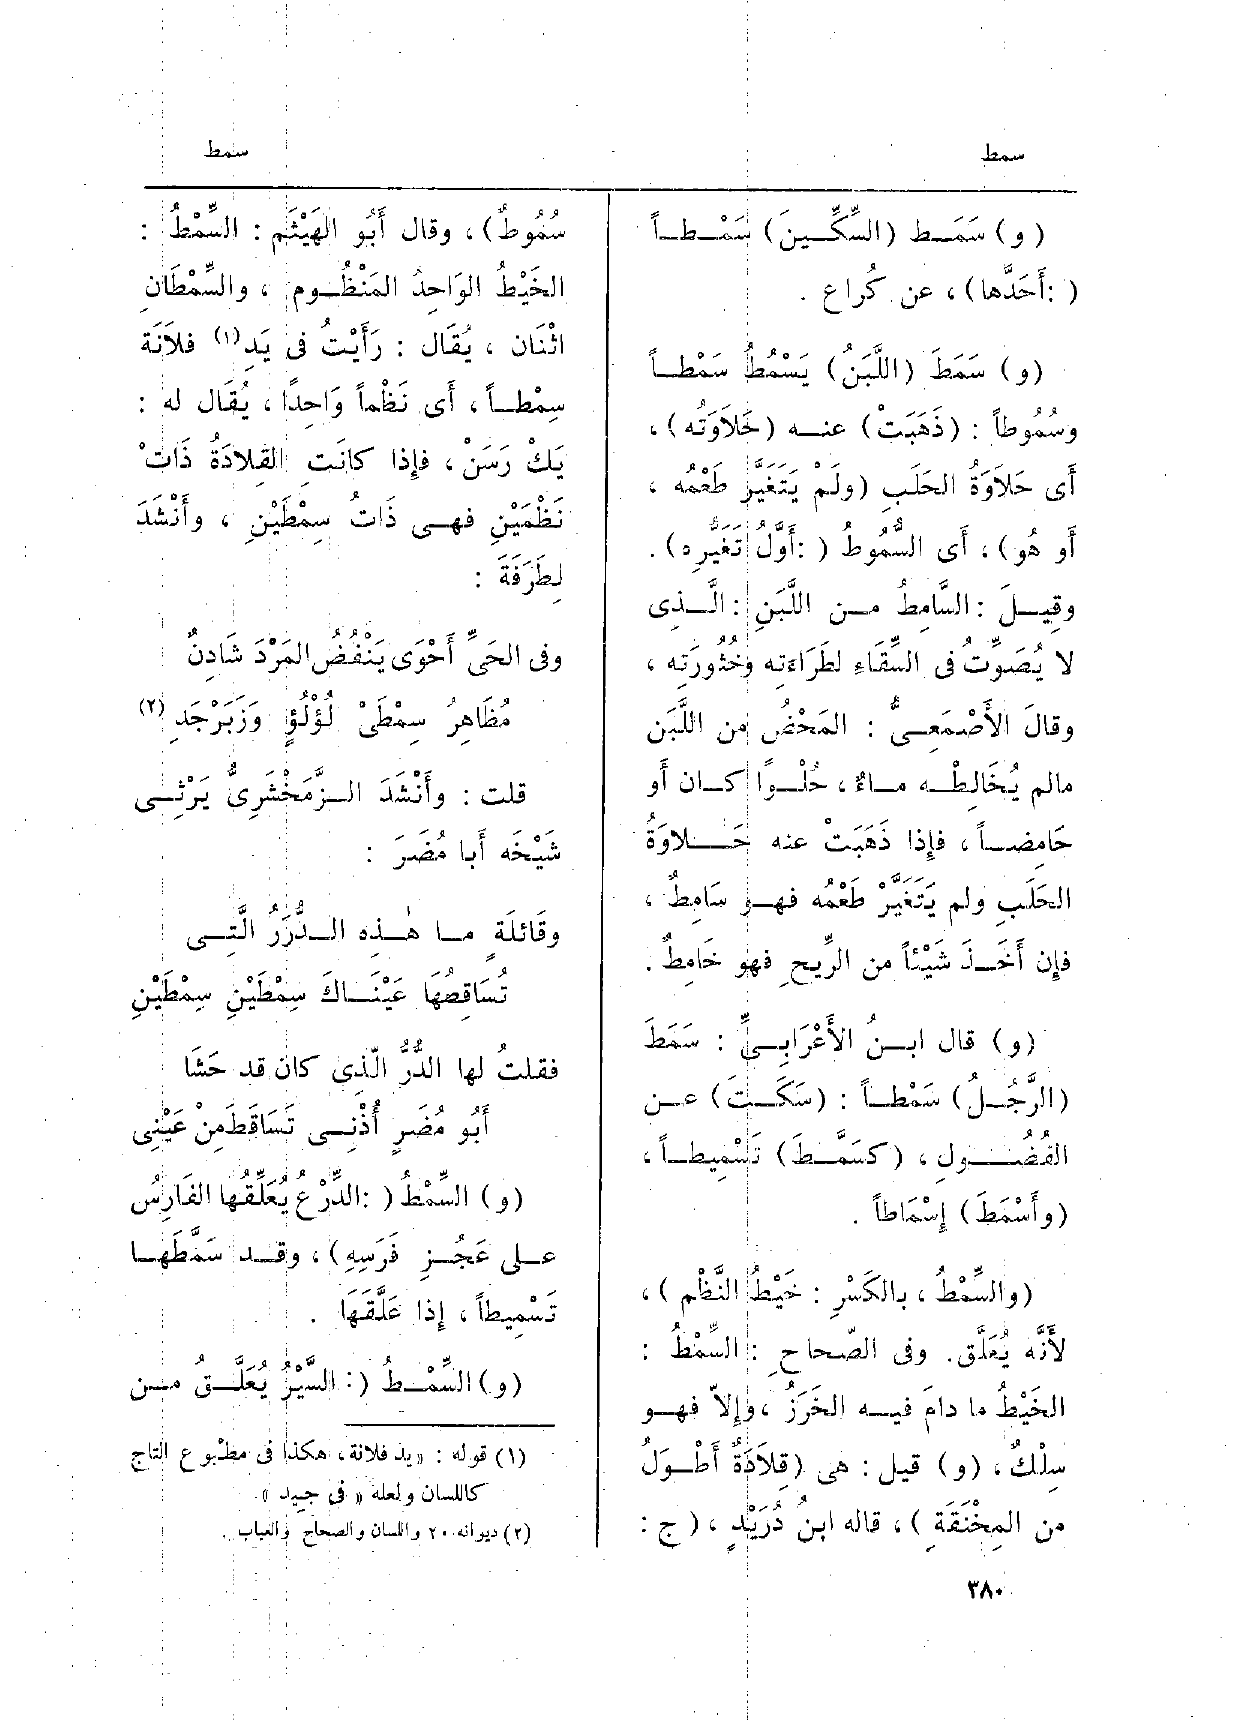 سمط
سمط
(و) سَمَـط (السِّكِّـينَ) سَمْـطـاً
( :أَحَدَّها) ، عن كُراع .
(و) سَمَطَ (اللَّبَنُ) يَسْمُطُ سَمْطـاً
وسُمُوطاً : (ذَهَبَتْ) عنـه (حَلَاوَتُه) ،
أَى حَلَاوَةُ الحَلَبِ (ولَمْ يَتَغَيَّرْ طَعْمُه ،
أَو هُو) ، أَى السُّمُوطُ ( :أَوَّلُ تَغَيُّرِه) .
وقِيـلَ : السَّامِطُ مـن اللَّبَنِ : الَّـذِى
لا يُصَوِّتُ فى السِّقَاءِ لطَرَاءَتِه وخُثُورَتِه ،
وقالَ الأَصْمَعِـىُّ : المَحْضُ من اللَّبَن
مالم يُخَالِطْـه مـاءٌ ، حُلْـوًا كـان أَو
حَامِضـاً ، فإِذا ذَهَبَتْ عنه حَـلاوَةُ
الحَلَبِ ولم يَتَغَيَّرْ طَعْمُه فهـو سَامِطٌ ،
فإِن أَخَـذَ شَيْئاً من الرِّيحِ فهو خَامِطٌ .
(و) قال ابـنُ الأَعْرَابِـىِّ : سَمَطَ
(الرَّجُـلُ) سَمْطـاً : (سَكَـتَ) عـن
الفُضُـولِ ، (كسَمَّـطَ) تَسْمِيطـاً ،
(وأَسْمَطَ) إِسْمَاطاً .
(والسِّمْطُ ، بالكَسْرِ : خَيْطُ النَّظْمِ ) ،
لأَنَّه يُعَلَّق. وفى الصّحاحِ : السِّمْطُ :
الخَيْطُ ما دامَ فيـه الخَرَزُ ، وإِلاّ فهـو
سِلْكٌ ، (و) قيل : هى (قِلَادَةٌ أَطْـوَلُ
من المِخْنَقَةِ ) ، قاله ابنُ دُرَيْدٍ ، ( ج :
سُمُوطٌ) ، وقال أَبُو الهَيْثَم : السِّمْطُ :
الخَيْطُ الوَاحِدُ المَنْظُـوم ، والسِّمْطَانِ
اثْنَان ، يُقَال : رَأَيْتُ فى يَدِ (١) فلَانَةَ
سِمْطـاً ، أَى نَظْماً وَاحِدًا ، يُقَال له :
يَكْ رَسَنْ ، فإِذا كانَتِ القِلادَةُ ذَاتَ
نَظْمَيْنِ فهـى ذَاتُ سِمْطَيْنِ ، وأَنْشَدَ
لِطَرَفَةَ :
وفى الحَىِّ أَحْوَى يَنْفُضُ المَرْدَ شَادِنٌ
مُظَاهِرُ سِمْطَىْ لُؤْلُؤٍ وَزَبَرْجَدِ (٢)
قلت : وأَنْشَدَ الـزَّمَخْشَرِىُّ يَرْثِـى
شَيْخَه أَبا مُضَرَ :
وقَائلَةٍ مـا هٰـذِه الـدُّرَرُ الَّتِـى
تُسَاقِطُهَا عَيْنَـاكَ سِمْطَيْنِ سِمْطَيْنِ
فقلتُ لها الدُّرُّ الّذِى كان قد حَشَا
أَبُو مُضَرٍ أُذْنِـى تَسَاقَطَ مِنْ عَيْنِى
(و) السِّمْطُ ( :الدِّرْعُ يُعَلِّقُها الفَارِسُ
عـلى عَجُـزِ فَرَسِهِ) ، وقـد سَمَّطَهـا
تَسْمِيطاً ، إِذا عَلَّقَهَا .
(و) السِّمْـطُ ( : السَّيْرُ يُعَلَّـق مـن
(١) قوله : « يد فلانة ، هكذا فى مطبوع التاج
كاللسان ولعله « فى جِيد ».
(٢) ديوانه ٢٠ واللسان والصحاح والعباب .
٣٨٠